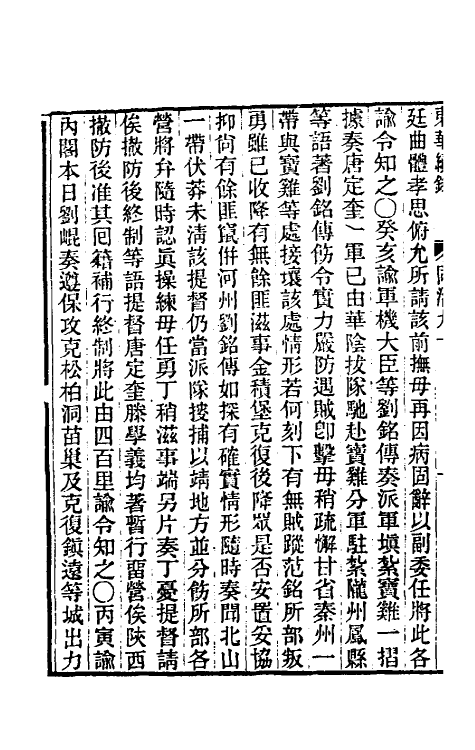 東華續錄　同治九十
廷曲體孝思俯允所請該前撫毋再因病固辭以副委任將此各
諭令知之○癸亥諭軍機大臣等劉銘傳奏派軍塡紮寶雞一摺
據奏唐定奎一軍已由華陰拔隊馳赴寶雞分軍駐紮隴州鳳縣
等語著劉銘傳飭令實力嚴防遇賊卽擊毋稍疏懈甘省秦州一
帶與寶雞等處接壤該處情形若何刻下有無賊蹤范銘所部叛
勇雖已收降有無餘匪滋事金積堡克復後降眾是否安置妥協
抑尙有餘匪竄倂河州劉銘傳如探有確實情形隨時奏聞北山
一帶伏莽未淸該提督仍當派隊搜捕以靖地方並分飭所部各
營將弁隨時認眞操練毋任勇丁稍滋事端另片奏丁憂提督請
俟撤防後終制等語提督唐定奎滕學義均著暫行畱營俟陝西
撤防後准其囘籍補行終制將此由四百里諭令知之○丙寅諭
內閣本日劉崐奏遵保攻克松柏洞苗巢及克復鎭遠等城出力